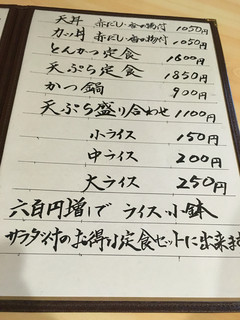 天丼 赤だし・香の物付 1050円
カツ丼 赤だし・香の物付 1050円
とんかつ定食 1600円
天ぷら定食 1850円
かつ鍋 900円
天ぷら盛り合わせ 1100円
小ライス 150円
中ライス 200円
大ライス 250円
六百円増しで ライス・小鉢
サラダ付のお得な定食セットに出来ます